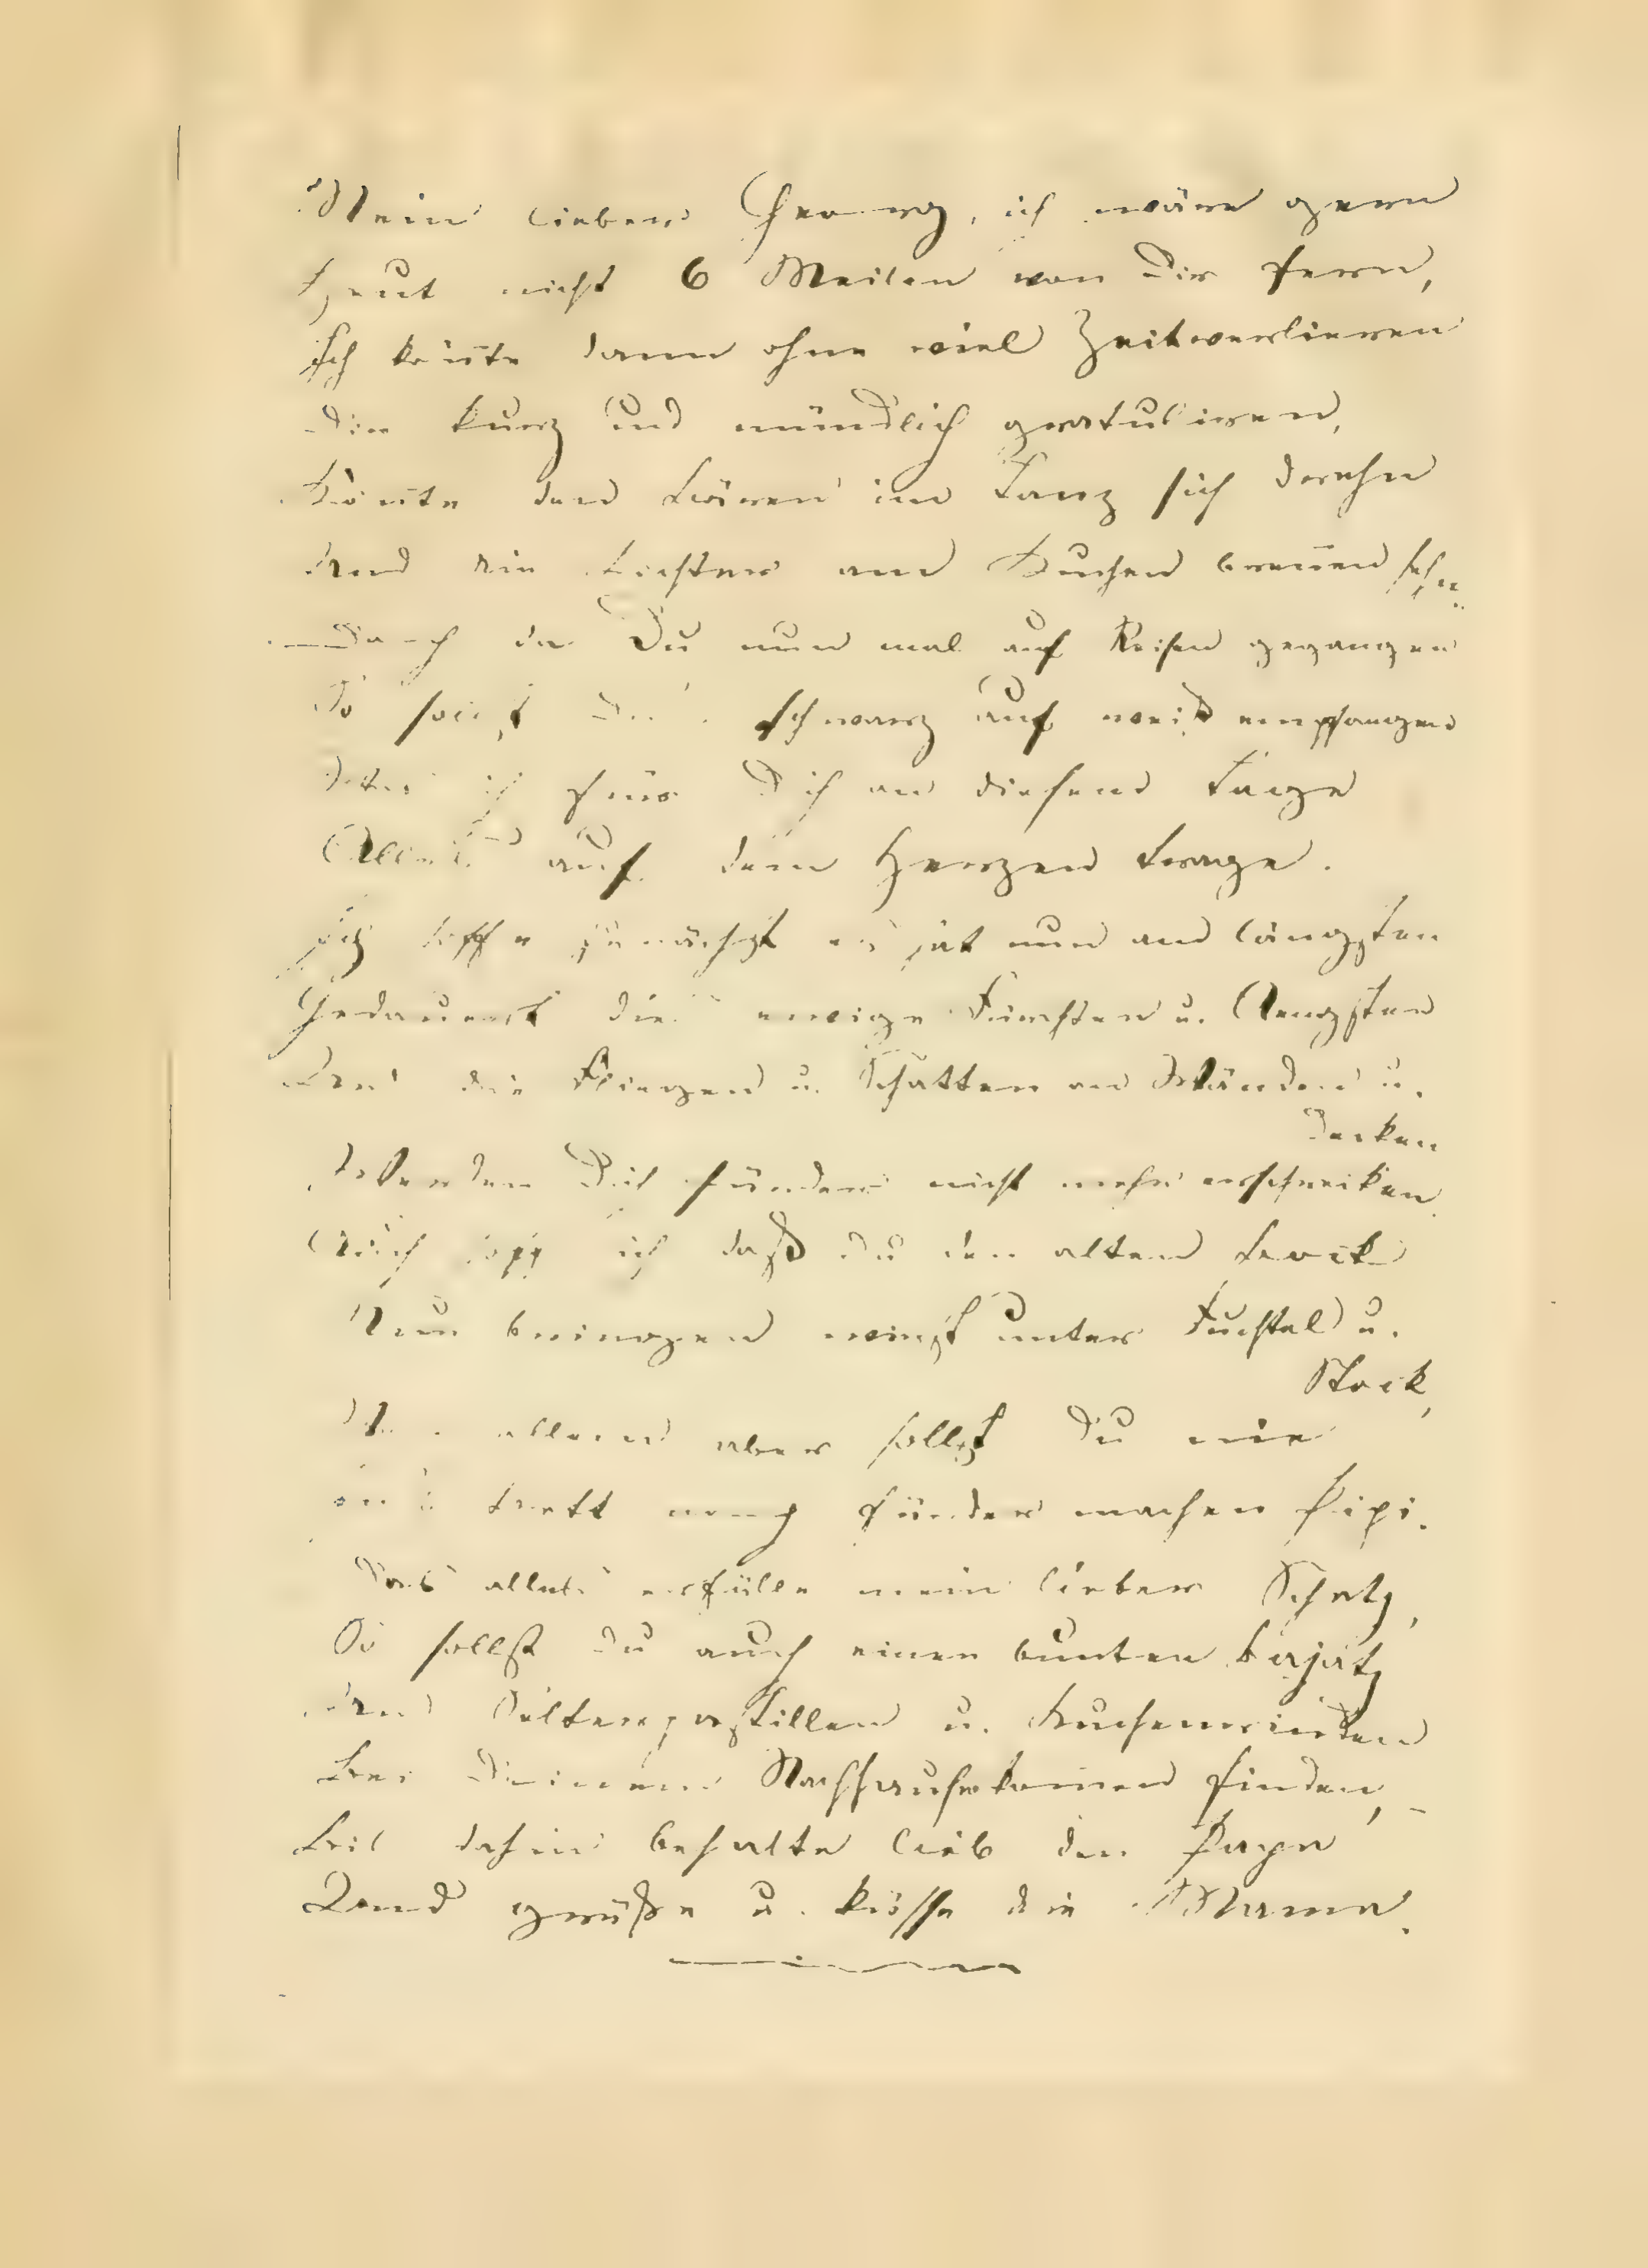 Mein lieber George, ich wäre gern
Heut nicht 6 Meilen von Dir fern,
Ich könnte dann ohne viel Zeitverlieren
Dir kurz und mündlich gratuliren,
Könnte den Bären im Tanz sich drehn
Und die Lichter am Kuchen brennen sehn.
Doch da Du nun mal auf Reisen gegangen
So sollst Du schwarz auf weiß empfangen
Was ich für Dich an diesem Tage
Alles auf dem Herzen trage.
Ich hoffe zunächst es hat nun am längsten
Gedauert die ewige Fürchten u. Aengsten
Und die Fliegen u. Schatten an Wänden u.
Decken
Werden Dich fürder nicht mehr erschrecken
Auch hoff ich daß Du den alten Bock
Nun bringen wirst unter Fuchtel u.
Stock,
Vor allem aber sollst Du nie
Ins Bett noch fürder machen Pipi.
Das alles erfülle mein lieber Schatz,
So sollst Du auch einen bunten Bajatz
Und Selterspastillen u. Kuchenrinden
Bei Deinem Nachhausekommen finden, –
Bis dahin behalte lieb den Papa
Und grüße u. küsse die Mama.